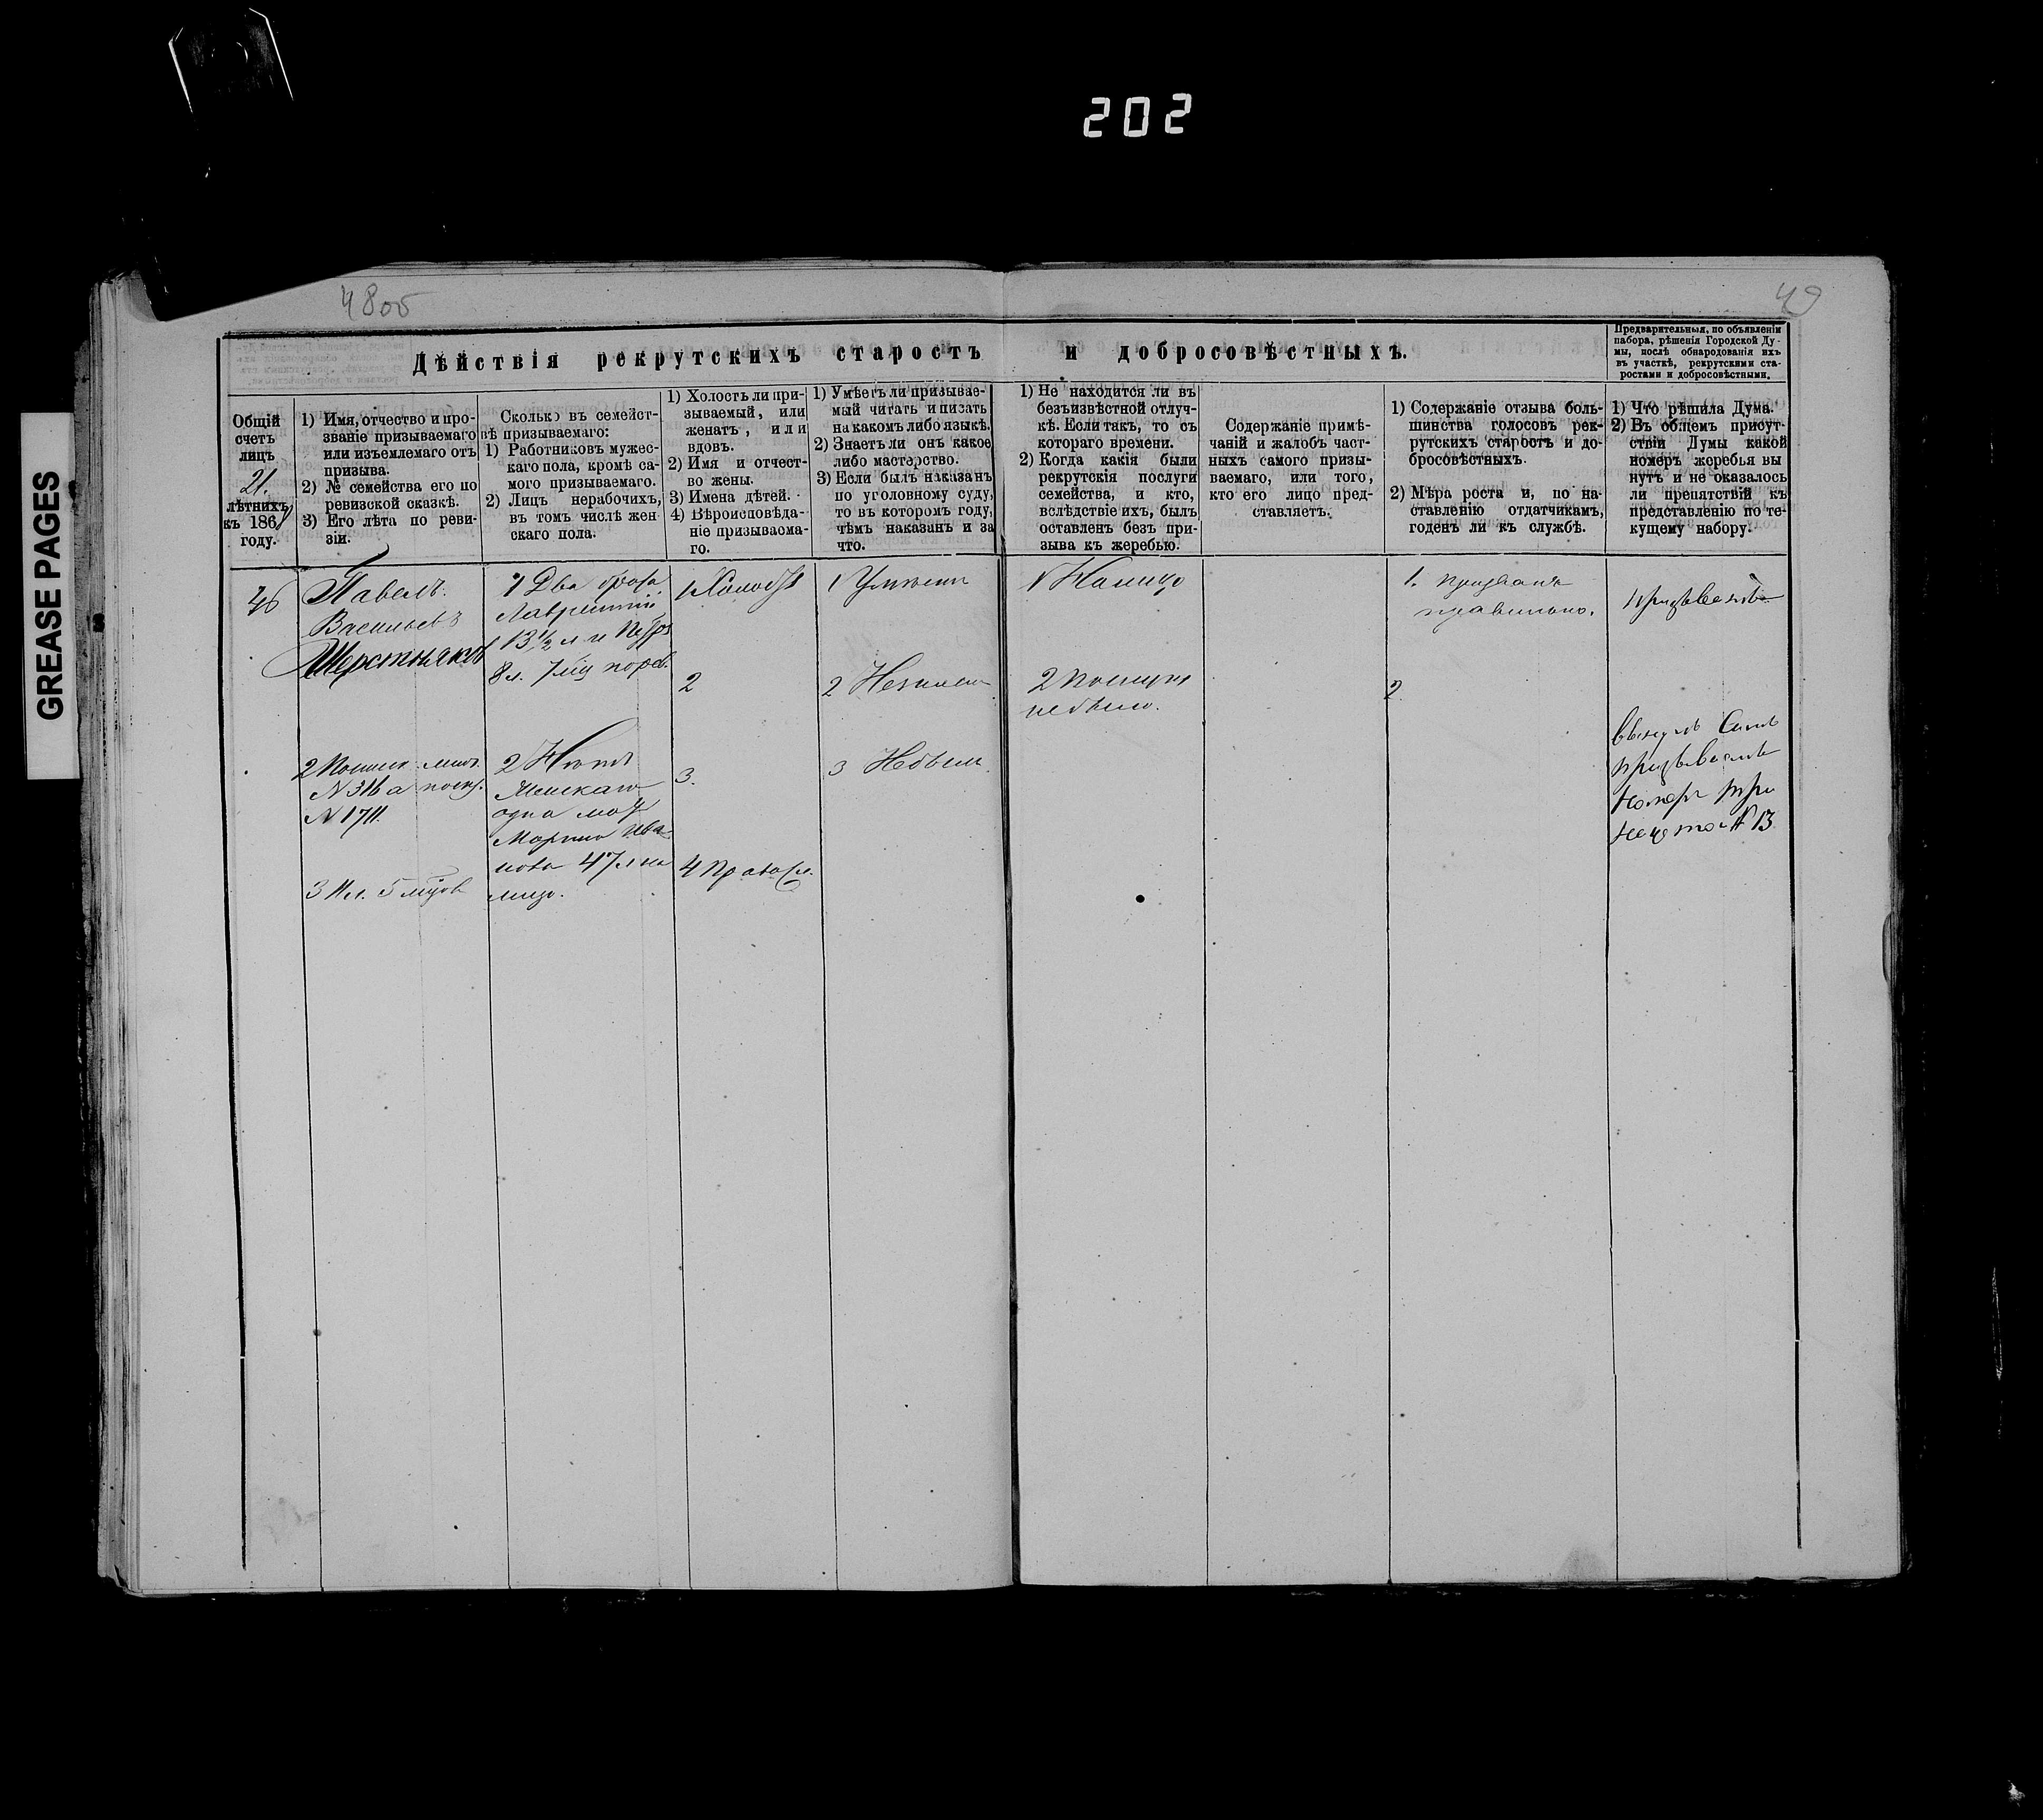 202
GREASE PAGES
48 об
49
Дѣйствія рекрутскихъ старостъ и добросовѣстныхъ.
Предварительныя, по объявленіи
набора, рѣшенія Городской Ду-
мы, послѣ обнародованія ихъ
въ участкѣ, рекрутскими ста-
ростами и добросовѣстными.
Общій
счетъ
лицъ
21.
лѣтнихъ
къ 1868
году.
1) Имя, отчество и про-
званіе призываемаго
или изъемлемаго отъ
призыва.
2) № семейства его по
ревизской сказкѣ.
3) Его лѣта по реви-
зіи.
Сколько въ семейст-
вѣ призываемаго:
1) Работниковъ мужес-
каго пола, кромѣ са-
мого призываемаго.
2) Лицъ нерабочихъ,
въ томъ числѣ жен
скаго пола.
1) Холостъ ли при-
зываемый, или
женатъ, или
вдовъ.
2) Имя и отчест-
во жены.
3) Имена дѣтей.
4) Вѣроисповѣда-
ніе призываема-
го.
1) Умѣетъ ли призывае-
мый читать и писать
на какомъ либо языкѣ.
2) Знаетъ ли онъ какое
либо мастерство.
3) Если былъ наказанъ
по уголовному суду,
то въ которомъ году,
чѣмъ наказанъ и за
что.
1) Не находится ли въ
безъизвѣстной отлуч-
кѣ. Если такъ, то съ
котораго времени.
2) Когда какія были
рекрутскія послуги
семейства, и кто,
вслѣдствіе ихъ, былъ
оставленъ безъ при-
зыва къ жеребью.
Содержаніе примѣ-
чаній и жалобъ част-
ныхъ самого призы-
ваемаго, или того,
кто его лицо пред-
ставляетъ.
1) Содержаніе отзыва боль-
шинства голосовъ рек-
рутскихъ старостъ и до-
бросовѣстныхъ.
2) Мѣра роста и, по на-
ставленію отдатчикамъ,
годенъ ли къ службѣ.
1) Что рѣшила Дума.
2) Въ общемъ присут-
ствіи Думы какой
номеръ жеребья вы
нутъ и не оказалось
ли препятствій къ
представленію по те-
кущему набору.
46
Павелъ
Васильевъ
Шерстняковъ
№ 316 а
№ 1711.
1 Два брата
Лаврентій
13 1/2 л и Петръ
8 л. 7 м
2
Женскаго
одна мать
Марина Ива
нова 47 л на
лицо.
1 Холостъ
2
3.
4 Правосл.
1 Умѣетъ
2 Незнаетъ
3 Небылъ
1 Налицо
2
небыло.
1. признанъ
правильно.
2
призываемъ
вынулъ Самъ
призываемый
номеръ три
надцатой № 13